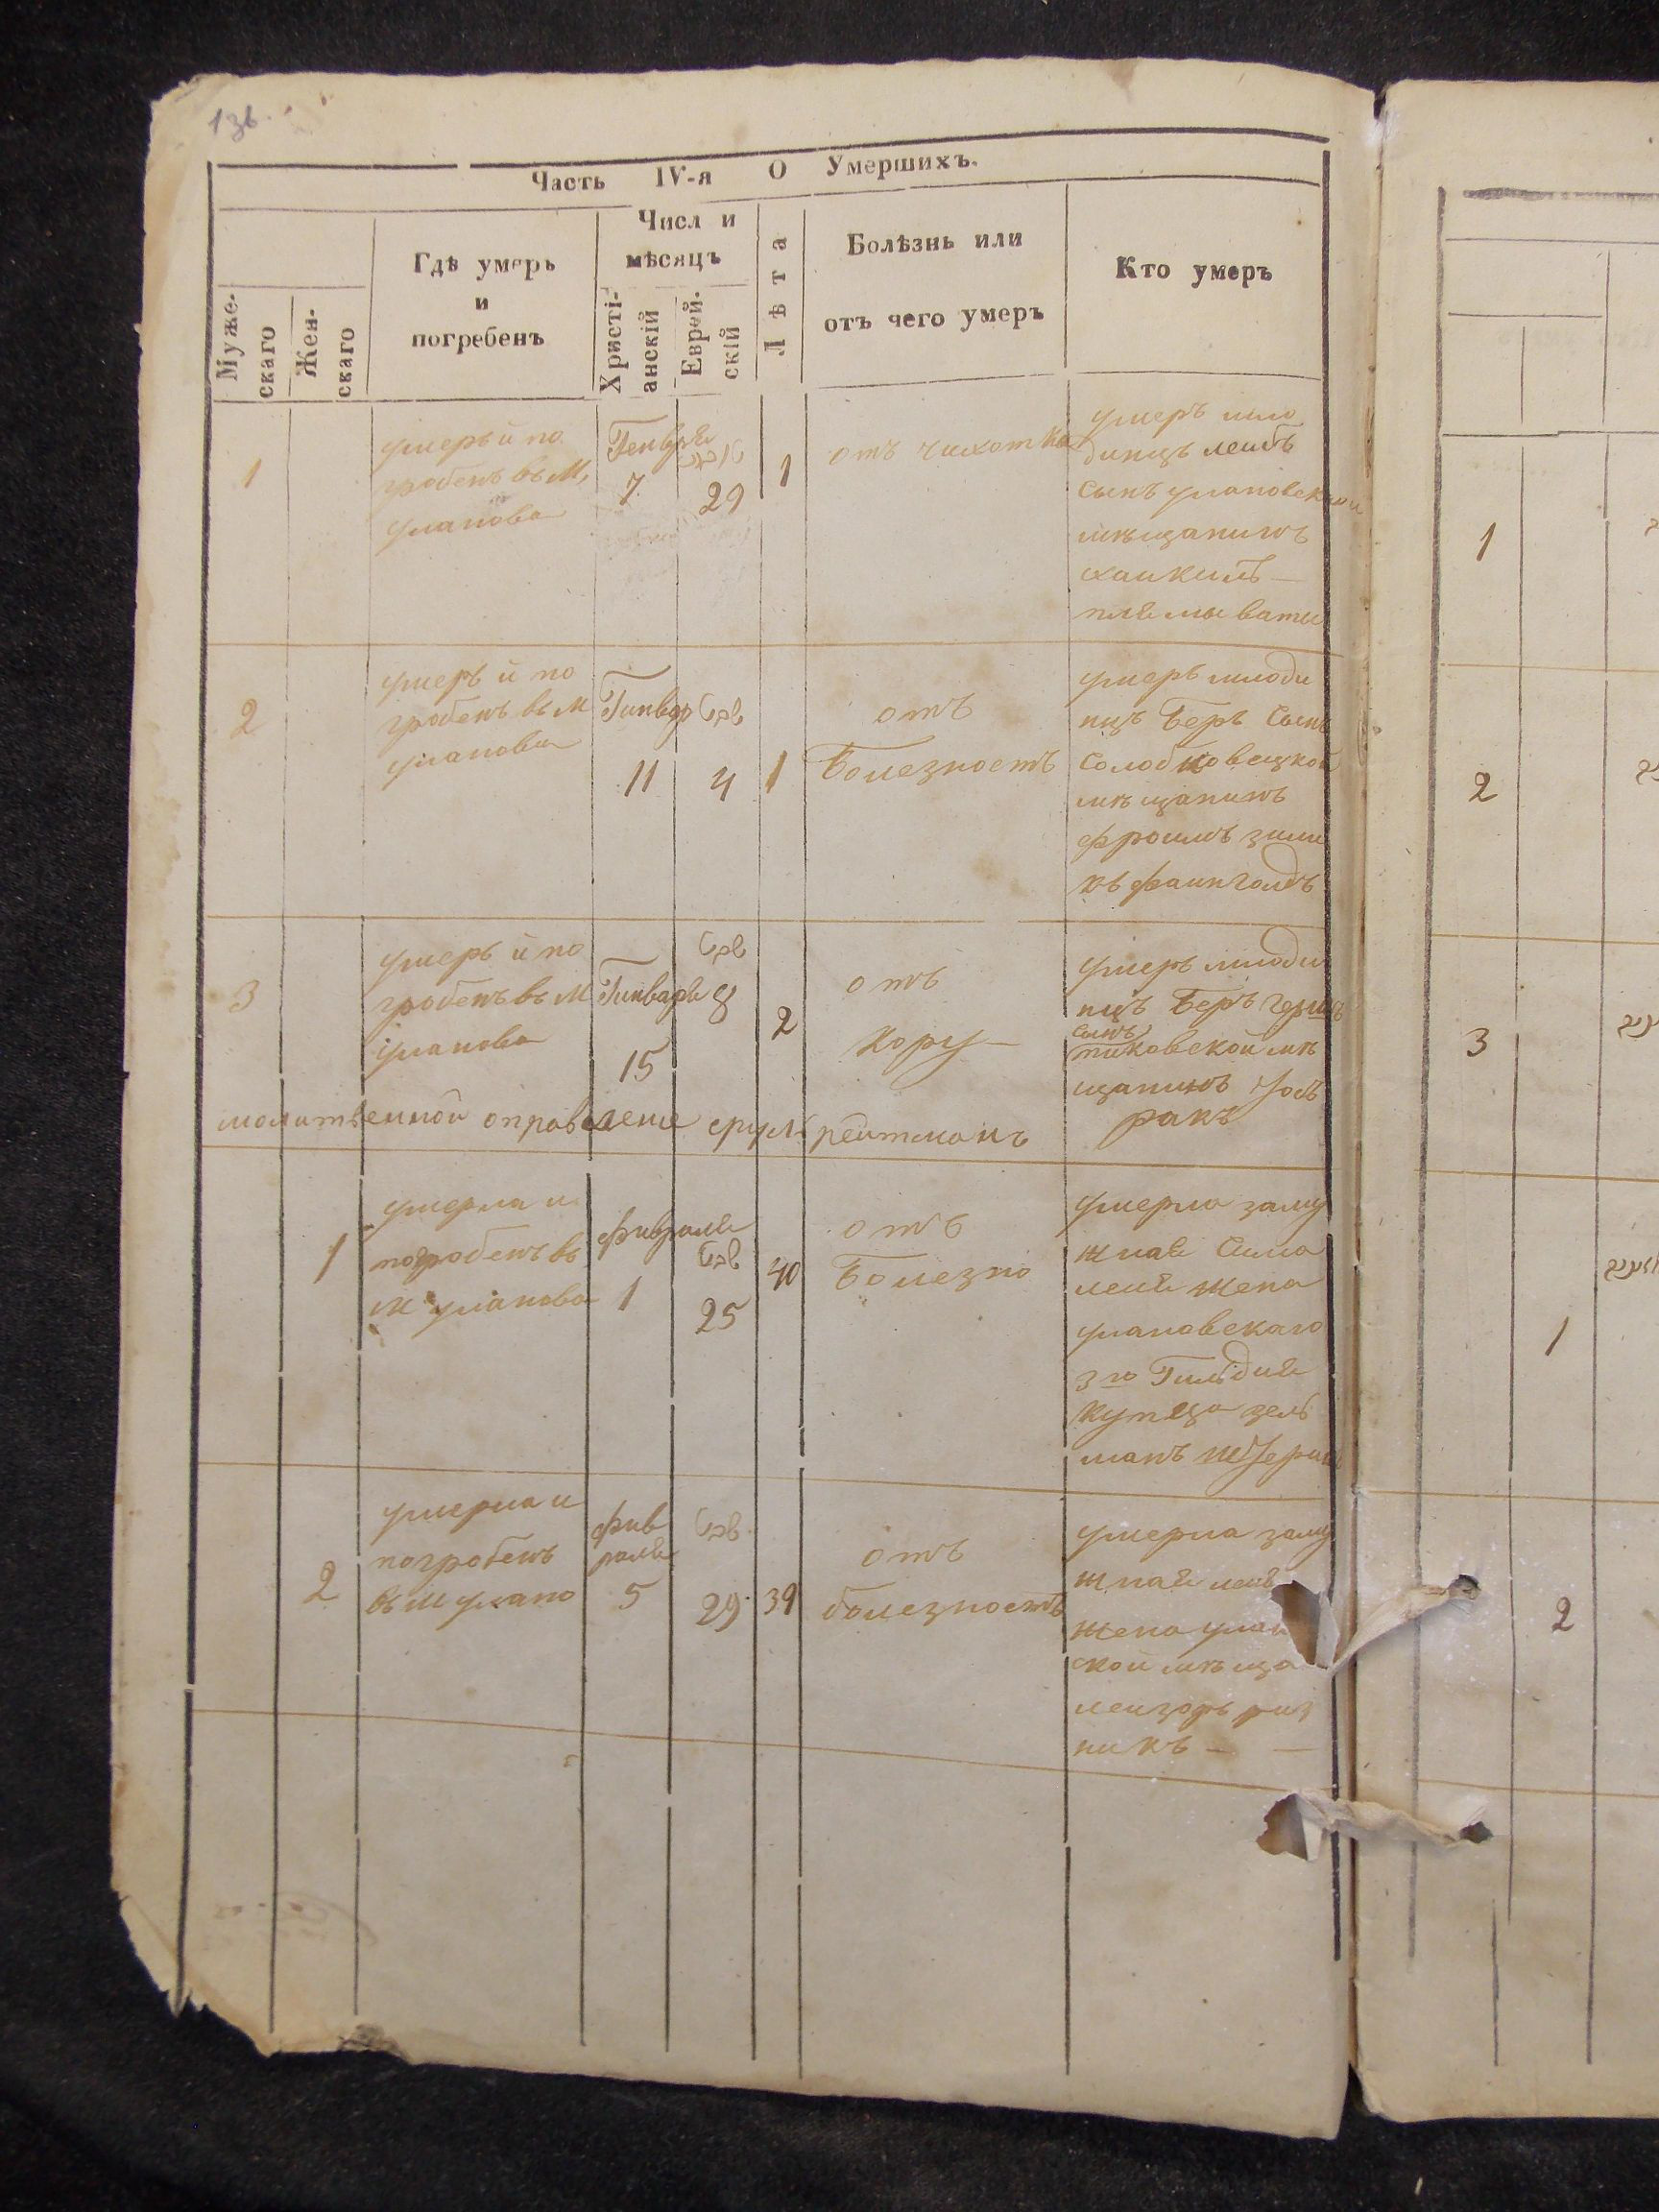 136.
Часть IV-я О Умершихъ.
Муже-
скаго
Жен-
скаго
Гдѣ умеръ
и
погребенъ
Числ и
мѣсяцъ
Христі-
анскій
Еврей-
скій
Лѣта
Болѣзнь или
отъ чего умеръ
Кто умеръ
1
умеръ и по
гробенъ въ М,
уланова
Генваря
7
29
1
отъ чихотка
умеръ мло
динцъ леибъ
Сынъ улановскои
мѣщанинъ
хаикилъ —
2
умеръ и по
гробенъ въ М
уланова
Гинвар
11
טבת
4
1
отъ
Болезность
умеръ млоди
нцъ Беръ Сынъ
мѣщанинъ
фроимъ зили
къ фаинголдъ
3
умеръ и по
гробенъ въ М
уланова
Гинваря
15
טבת
8
2
отъ
Кору —
умеръ млоди
нцъ Беръ герш
сынъ
пиковской мѣ
щанинъ
ракъ
молитвенной оправление сруль реитманъ
1
умерла и
погробенъ въ
М уланова
фивраля
1
25
40
отъ
Болезно
умерла заму
жная Сима
лея жена
улановскаго
3го Гилдия
Купца зелъ
манъ
2
умерла и
погробенъ
въ М улано
фив
раля
5
29
39
отъ
болезность
умерла заму
жная
жена
ской мѣща
леизоръ риз
никъ — —
1
2
3
1
2